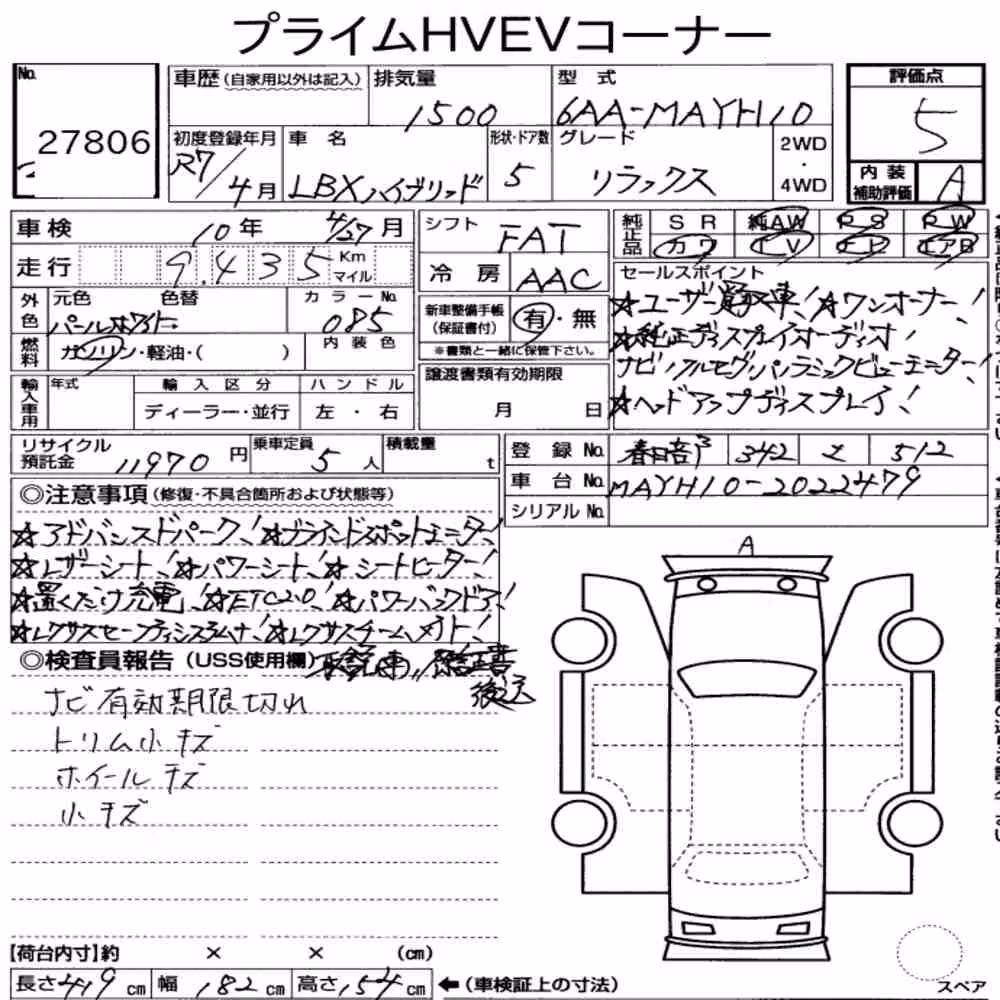 プライムHVEVコーナー
No. 27806
車歴(自家用以外は記入)
排気量 1500
型式 6AA-MAYH10
評価点 5
初度登録年月 R7/4月
車名 LBXハイブリッド
形状・ドア数 5
グレード リラックス
2WD・4WD
内装補助評価 A
車検 10年 4/27月
シフト FAT
純正品 SR 純AW PS PW
カワ TV ナビ エアB
走行 9.435 Km マイル
冷房 AAC
セールスポイント
☆ユーザー買取車!☆ワンオーナー!
☆純正ディスプレイオーディオ
ナビ!フルセグ!パノラミックビューモニター!
☆ヘッドアップディスプレイ!
外色 元色 パールホワイト 色替
カラーNo. 085
新車整備手帳(保証書付) 有・無
※書類と一緒に保管下さい。
燃料 ガソリン・軽油・( )
内装色
輸入車用 年式 輸入区分 ディーラー・並行 ハンドル 左・右
譲渡書類有効期限 月 日
リサイクル預託金 11970円
乗車定員 5人
積載量 t
登録No. 春日部 342 512
車台No. MAYH10-2022479
シリアルNo.
◎注意事項(修復・不具合箇所および状態等)
☆アドバンスドパーク!☆ブラインドスポットモニター!
☆レザーシート!☆パワーシート!☆シートヒーター!
☆置くだけ充電!☆ETC2.0!☆パワーバックドア!
☆レクサスセーフティシステム+!☆レクサスチームメイト!
◎検査員報告(USS使用欄)
後送
ナビ有効期限切れ
トリム小キズ
ホイールキズ
小キズ
A
【荷台内寸】約 × × (cm)
長さ419cm 幅182cm 高さ154cm ←(車検証上の寸法)
スペア